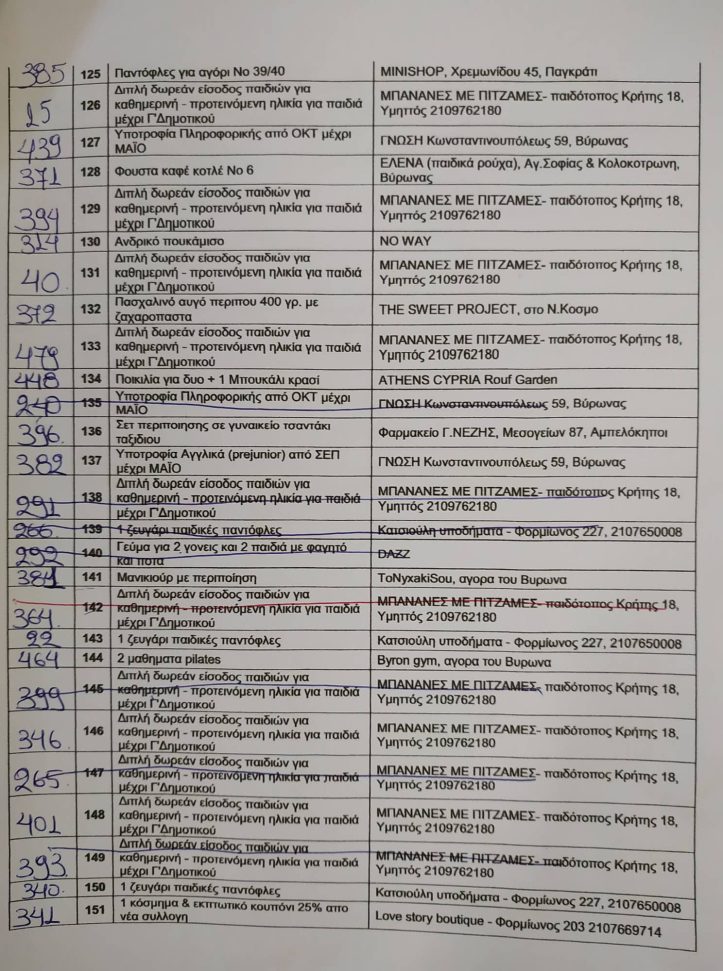 385 125 Παντόφλες για αγόρι Νο 39/40 MINISHOP, Χρεμωνίδου 45, Παγκράτι
15 126 Διπλή δωρεάν είσοδος παιδιών για
καθημερινή - προτεινόμενη ηλικία για παιδιά
μέχρι Γ'Δημοτικού ΜΠΑΝΑΝΕΣ ΜΕ ΠΙΤΖΑΜΕΣ- παιδότοπος Κρήτης 18,
Υμηττός 2109762180
439 127 Υποτροφία Πληροφορικής από ΟΚΤ μέχρι
ΜΑΪΟ ΓΝΩΣΗ Κωνσταντινουπόλεως 59, Βύρωνας
371 128 Φουστα καφέ κοτλέ Νο 6 ΕΛΕΝΑ (παιδικά ρούχα), Αγ.Σοφίας & Κολοκοτρωνη,
Βύρωνας
394 129 Διπλή δωρεάν είσοδος παιδιών για
καθημερινή - προτεινόμενη ηλικία για παιδιά
μέχρι Γ'Δημοτικού ΜΠΑΝΑΝΕΣ ΜΕ ΠΙΤΖΑΜΕΣ- παιδότοπος Κρήτης 18,
Υμηττός 2109762180
314 130 Ανδρικό πουκάμισο NO WAY
40. 131 Διπλή δωρεάν είσοδος παιδιών για
καθημερινή - προτεινόμενη ηλικία για παιδιά
μέχρι Γ'Δημοτικού ΜΠΑΝΑΝΕΣ ΜΕ ΠΙΤΖΑΜΕΣ- παιδότοπος Κρήτης 18,
Υμηττός 2109762180
372 132 Πασχαλινό αυγό περιπου 400 γρ. με
ζαχαροπαστα THE SWEET PROJECT, στο Ν.Κοσμο
479 133 Διπλή δωρεάν είσοδος παιδιών για
καθημερινή - προτεινόμενη ηλικία για παιδιά
μέχρι Γ'Δημοτικού ΜΠΑΝΑΝΕΣ ΜΕ ΠΙΤΖΑΜΕΣ- παιδότοπος Κρήτης 18,
Υμηττός 2109762180
448 134 Ποικιλία για δυο + 1 Μπουκάλι κρασί ATHENS CYPRIA Rouf Garden
240 135 Υποτροφία Πληροφορικής από ΟΚΤ μέχρι
ΜΑΪΟ ΓΝΩΣΗ Κωνσταντινουπόλεως 59, Βύρωνας
396. 136 Σετ περιποιησης σε γυναικείο τσαντάκι
ταξιδιου Φαρμακείο Γ.ΝΕΖΗΣ, Μεσογείων 87, Αμπελόκηποι
382 137 Υποτροφία Αγγλικά (prejunior) από ΣΕΠ
μέχρι ΜΑΪΟ ΓΝΩΣΗ Κωνσταντινουπόλεως 59, Βύρωνας
291 138 Διπλή δωρεάν είσοδος παιδιών για
καθημερινή - προτεινόμενη ηλικία για παιδιά
μέχρι Γ'Δημοτικού ΜΠΑΝΑΝΕΣ ΜΕ ΠΙΤΖΑΜΕΣ- παιδότοπος Κρήτης 18,
Υμηττός 2109762180
266. 139 1 ζευγάρι παιδικές παντόφλες Κατσιούλη υποδήματα - Φορμίωνος 227, 2107650008
292 140 Γεύμα για 2 γονεις και 2 παιδιά με φαγητό
και ποτα DAZZ
384 141 Μανικιούρ με περιποίηση ToNyxakiSou, αγορα του Βυρωνα
364. 142 Διπλή δωρεάν είσοδος παιδιών για
καθημερινή - προτεινόμενη ηλικία για παιδιά
μέχρι Γ'Δημοτικού ΜΠΑΝΑΝΕΣ ΜΕ ΠΙΤΖΑΜΕΣ- παιδότοπος Κρήτης 18,
Υμηττός 2109762180
22 143 1 ζευγάρι παιδικές παντόφλες Κατσιούλη υποδήματα - Φορμίωνος 227, 2107650008
464 144 2 μαθηματα pilates Byron gym, αγορα του Βυρωνα
399 145 Διπλή δωρεάν είσοδος παιδιών για
καθημερινή - προτεινόμενη ηλικία για παιδιά
μέχρι Γ'Δημοτικού ΜΠΑΝΑΝΕΣ ΜΕ ΠΙΤΖΑΜΕΣ- παιδότοπος Κρήτης 18,
Υμηττός 2109762180
346. 146 Διπλή δωρεάν είσοδος παιδιών για
καθημερινή - προτεινόμενη ηλικία για παιδιά
μέχρι Γ'Δημοτικού ΜΠΑΝΑΝΕΣ ΜΕ ΠΙΤΖΑΜΕΣ- παιδότοπος Κρήτης 18,
Υμηττός 2109762180
265. 147 Διπλή δωρεάν είσοδος παιδιών για
καθημερινή - προτεινόμενη ηλικία για παιδιά
μέχρι Γ'Δημοτικού ΜΠΑΝΑΝΕΣ ΜΕ ΠΙΤΖΑΜΕΣ- παιδότοπος Κρήτης 18,
Υμηττός 2109762180
401 148 Διπλή δωρεάν είσοδος παιδιών για
καθημερινή - προτεινόμενη ηλικία για παιδιά
μέχρι Γ'Δημοτικού ΜΠΑΝΑΝΕΣ ΜΕ ΠΙΤΖΑΜΕΣ- παιδότοπος Κρήτης 18,
Υμηττός 2109762180
393. 149 Διπλή δωρεάν είσοδος παιδιών για
καθημερινή - προτεινόμενη ηλικία για παιδιά
μέχρι Γ'Δημοτικού ΜΠΑΝΑΝΕΣ ΜΕ ΠΙΤΖΑΜΕΣ- παιδότοπος Κρήτης 18,
Υμηττός 2109762180
340. 150 1 ζευγάρι παιδικές παντόφλες Κατσιούλη υποδήματα - Φορμίωνος 227, 2107650008
341 151 1 κόσμημα & εκπτωτικό κουπόνι 25% απο
νέα συλλογη Love story boutique - Φορμίωνος 203 2107669714